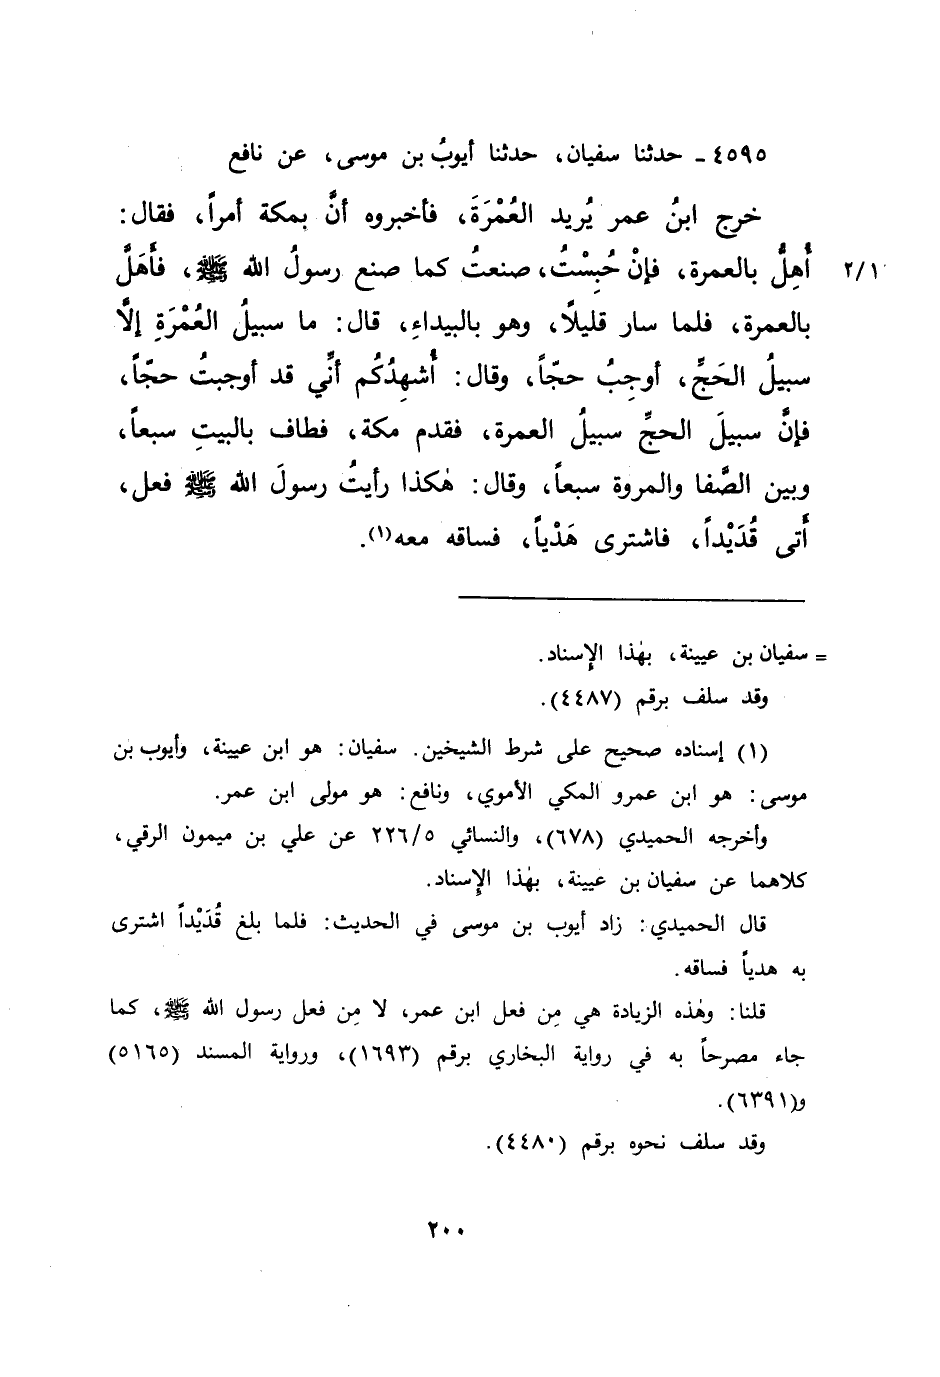 ٤٥٩٥ ـ حدثنا سفيان، حدثنا أيوبُ بن موسى، عن نافع
خرج ابنُ عمر يُريد العُمْرَةَ، فأخبروه أنَّ بمكة أمراً، فقال:
أُهِلُّ بالعمرة، فإنْ حُبِسْتُ، صنعتُ كما صنع رسولُ الله ﷺ، فأَهَلَّ ٢/١
بالعمرة، فلما سار قليلًا، وهو بالبيداءِ، قال: ما سبيلُ العُمْرَةِ إلَّا
سبيلُ الحَجِّ، أوجِبُ حجّاً، وقال: أُشهِدُكُم أنِّي قد أوجبتُ حجّاً،
فإنَّ سبيلَ الحجِّ سبيلُ العمرة، فقدم مكة، فطاف بالبيتِ سبعاً،
وبين الصَّفا والمروة سبعاً، وقال: هٰكذا رأيتُ رسولَ الله ﷺ فعل،
أَتى قُدَيْداً، فاشترى هَدْياً، فساقه معه(١).
= سفيان بن عيينة، بهٰذا الإِسناد.
وقد سلف برقم (٤٤٨٧).
(١) إسناده صحيح على شرط الشيخين. سفيان: هو ابن عيينة، وأيوب بن
موسى: هو ابن عمرو المكي الأموي، ونافع: هو مولى ابن عمر.
وأخرجه الحميدي (٦٧٨)، والنسائي ٢٢٦/٥ عن علي بن ميمون الرقي،
كلاهما عن سفيان بن عيينة، بهٰذا الإِسناد.
قال الحميدي: زاد أيوب بن موسى في الحديث: فلما بلغ قُدَيْداً اشترى
به هدياً فساقه.
قلنا: وهٰذه الزيادة هي مِن فعل ابن عمر، لا مِن فعل رسول الله ﷺ، كما
جاء مصرحاً به في رواية البخاري برقم (١٦٩٣)، ورواية المسند (٥١٦٥)
و(٦٣٩١).
وقد سلف نحوه برقم (٤٤٨٠).
٢٠٠